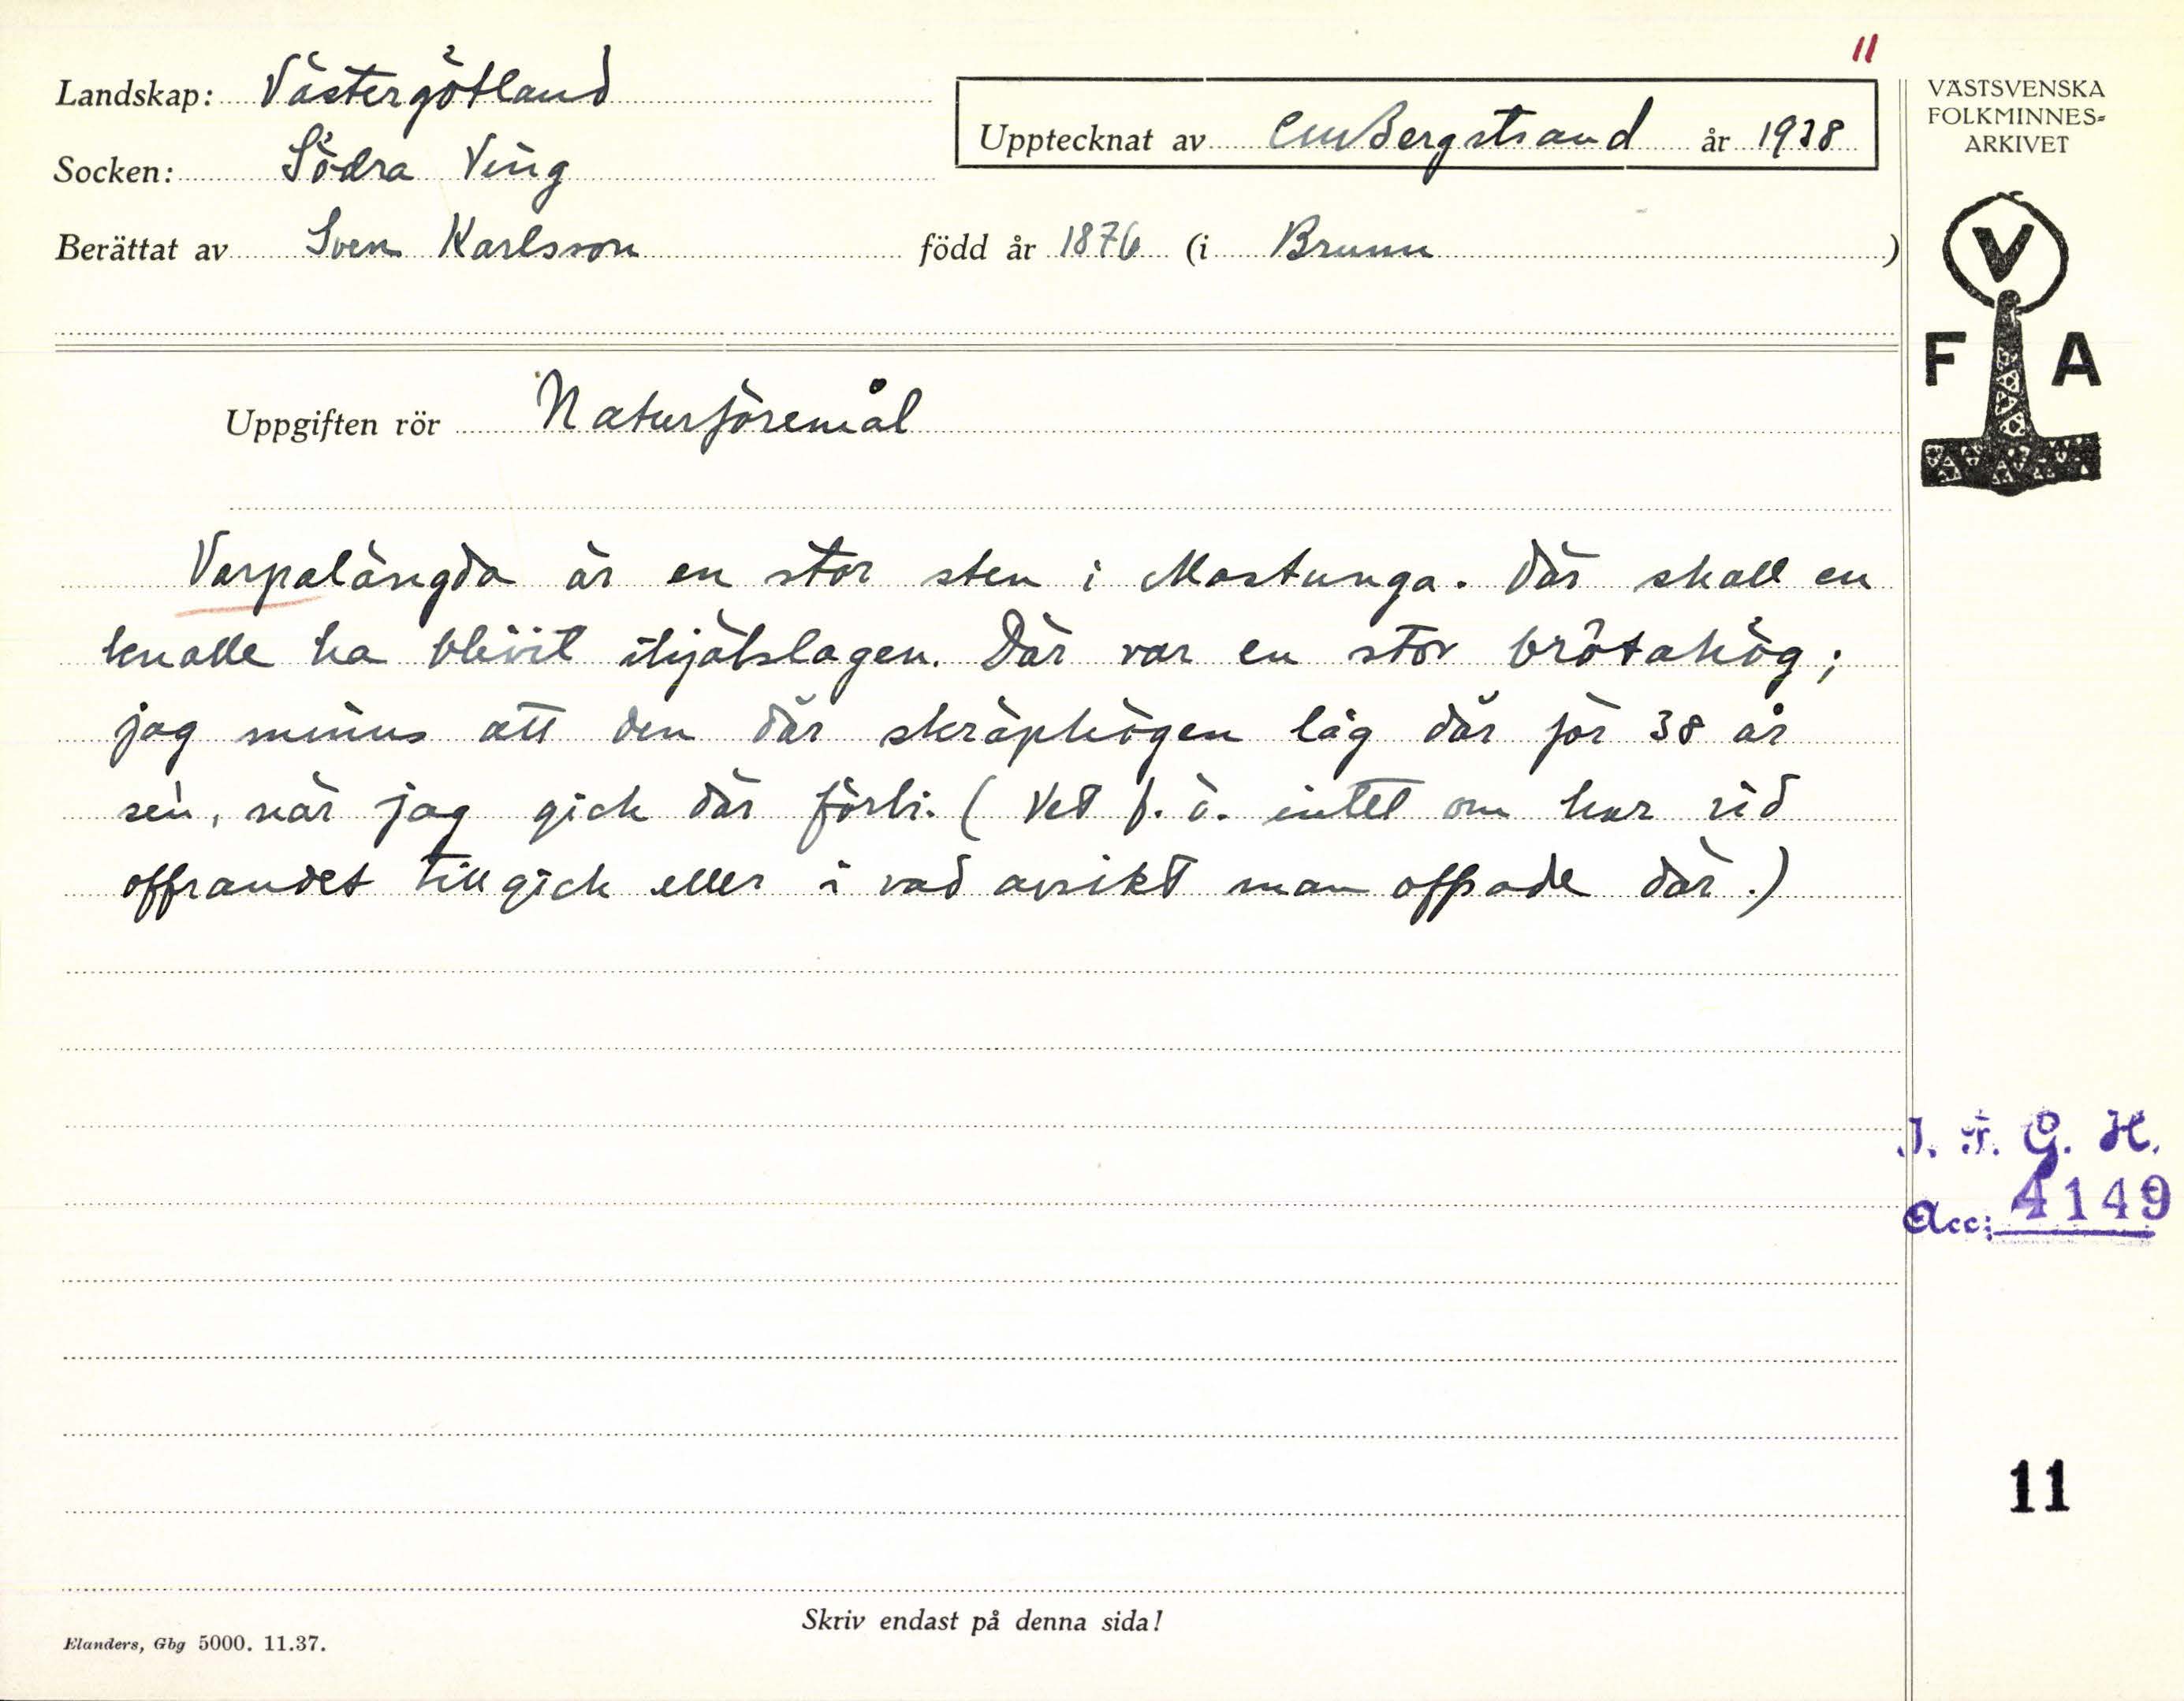 11
Landskap: Västergötland
Socken: Södra Ving
Berättat av Sven Karlsson född år 1876 (i Brunn )
Upptecknat av CMBergstrand år 1938
VÄSTSVENSKA
FOLKMINNES-
ARKIVET
V
F A
Uppgiften rör Naturföremål
Varpalängda är en stor sten i Mastunga. Där skall en
knalle ha blivit ihjälslagen. Där var en stor brötahög;
jag minns att den där skräphögen låg där för 38 år
sen, när jag gick där förbi. (Vet f. ö. intet om hur vid
offrandet tillgick eller i vad avsikt man offrade där.)
I. F. G. H.
Acc: 4149
11
Skriv endast på denna sida!
Elanders, Gbg 5000. 11.37.